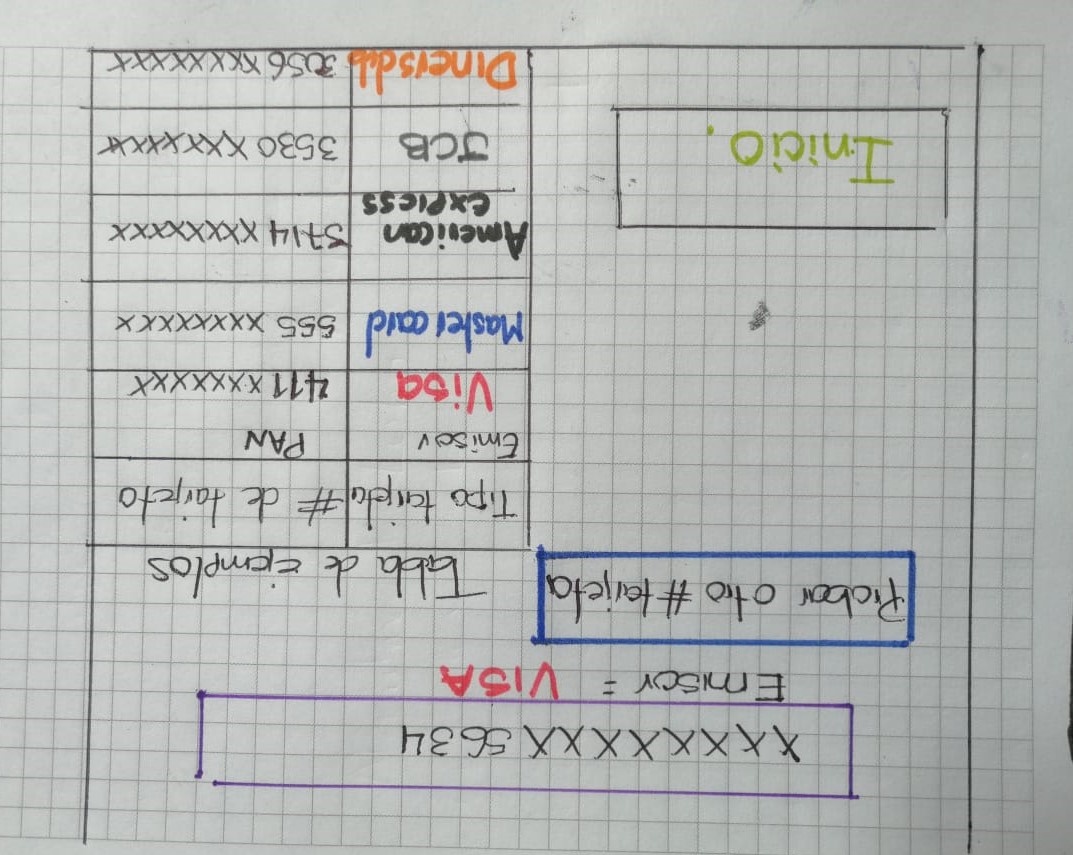 XXXXXXXX 5634
Emisor = VISA
Probar otro # tarjeta
Tabla de ejemplos
Tipo tarjeta # de tarjeta
Emisor PAN
Visa 411 xxxxxxx
Mastercard 555 xxxxxxxx
American 3714 xxxxxxxx
express
JCB 3530 xxxxxxx
Diners club 3056 xxxxxxxx
Inicio.